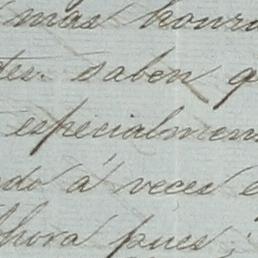 mas honra
tes. saben q
especialmen
do á veces e
hora pues,